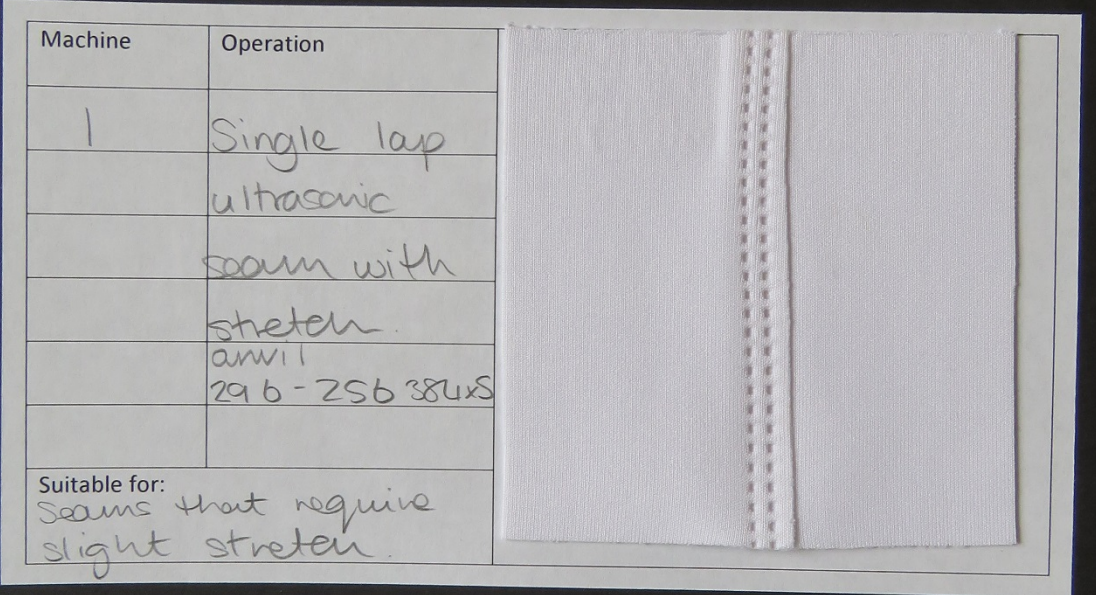 Machine Operation
1 Single lap
ultrasonic
seam with
stretch.
anvil
296-256 384xS
Suitable for:
seams that require
slight stretch.